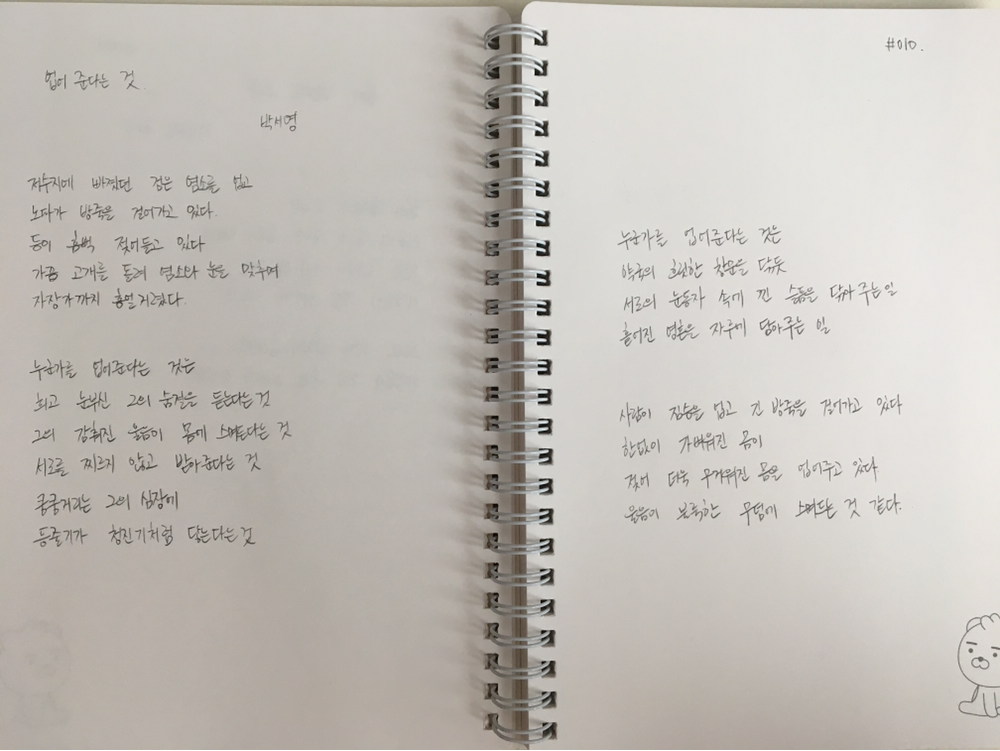 업어 준다는 것.
박서영
저수지에 빠졌던 검은 염소를 업고
노파가 방죽을 걸어가고 있다.
등이 흠뻑 젖어들고 있다
가끔 고개를 돌려 염소와 눈을 맞추며
자장가까지 흥얼거렸다.
누군가를 업어준다는 것은
희고 눈부신 그의 숨결을 듣는다는 것
그의 감춰진 울음이 몸에 스며든다는 것
서로를 찌르지 않고 받아준다는 것
쿵쿵거리는 그의 심장에
등줄기가 청진기처럼 닿는다는 것
#010.
누군가를 업어준다는 것은
약국의 흐릿한 창문을 닦듯
서로의 눈동자 속에 낀 슬픔을 닦아 주는 일
흩어진 영혼을 자루에 담아주는 일
사람이 짐승을 업고 긴 방죽을 걸어가고 있다
한없이 가벼워진 몸이
젖어 더욱 무거워진 몸을 업어주고 있다
울음이 불룩한 무덤에 스며드는 것 같다.